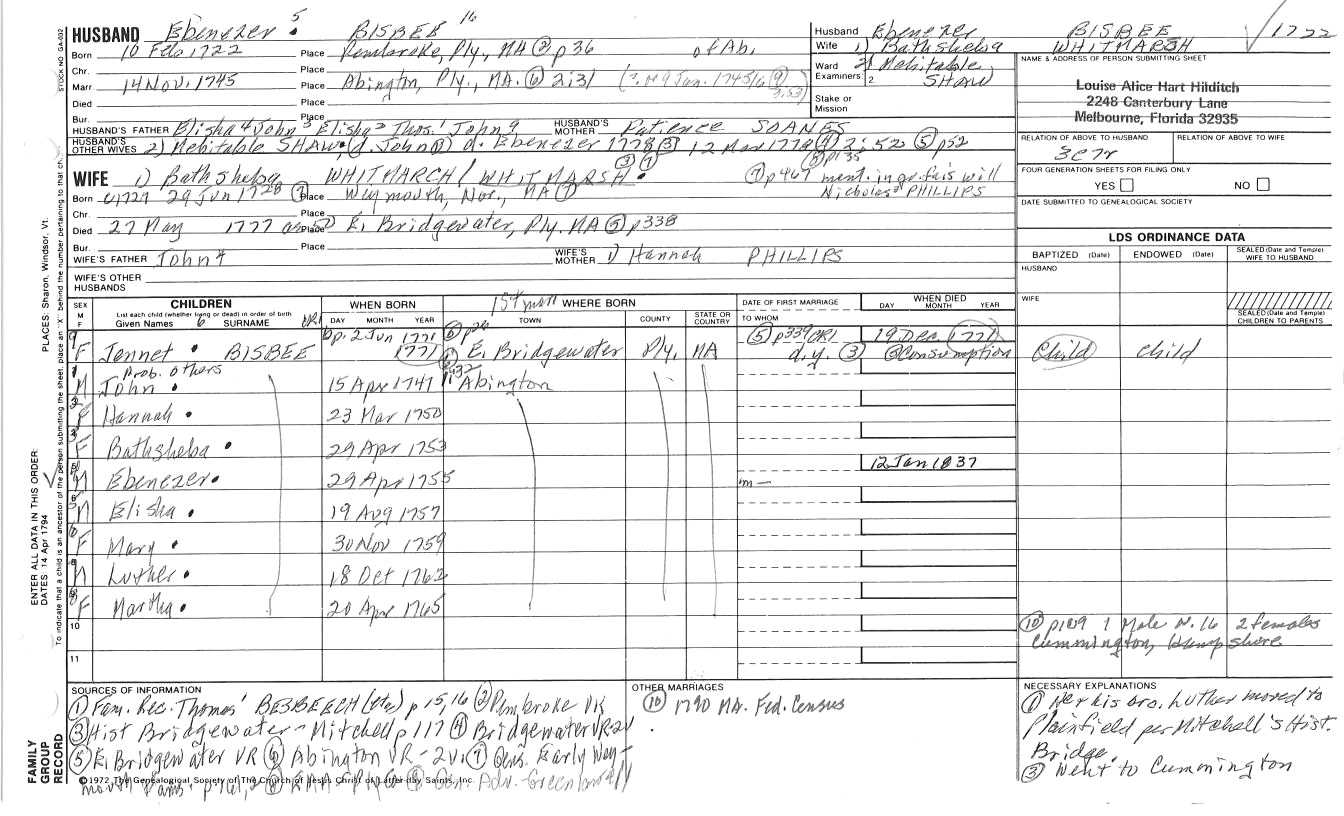 STOCK NO. GA-002
HUSBAND Ebenezer 5 BISBEE 16
Born 10 Feb 1722 Place Pembroke, Ply, MA (2) p36 of Ab,
Chr. Place
Marr 14 Nov. 1745 Place Abington, Ply, MA. (6) 2:31
Died Place
Bur.
HUSBAND'S FATHER Elisha 4 John 3 Elisha 2 Thos. 1 John 9 HUSBAND'S MOTHER Patience SOANES
HUSBAND'S OTHER WIVES 2) Mehitable SHAW (d. John d. Ebenezer 1778 (3) 12 Mar 1779 2:52 (5) p52
(8) p135
Husband Ebenezer BISBEE 1722
Wife 1) Bathsheba WHITMARSH
Ward Examiners: 2) Mehitable SHAW
2
Stake or Mission
NAME & ADDRESS OF PERSON SUBMITTING SHEET
Louise Alice Hart Hilditch
2248 Canterbury Lane
Melbourne, Florida 32935
RELATION OF ABOVE TO HUSBAND RELATION OF ABOVE TO WIFE
3C7r
FOUR GENERATION SHEETS FOR FILING ONLY
YES NO
DATE SUBMITTED TO GENEALOGICAL SOCIETY
LDS ORDINANCE DATA
BAPTIZED (Date) ENDOWED (Date) SEALED (Date and Temple) WIFE TO HUSBAND
HUSBAND
WIFE
SEALED (Date and Temple) CHILDREN TO PARENTS
WIFE 1) Bathsheba WHITMARCH / WHITMARSH (3) (7)
(7) p467 ment. in gr. fa's will
Nicholas PHILLIPS
Born c1727 29 Jun 1728 Place Weymouth, Nor., MA (7)
Chr. Place
Died 27 May 1777 Place E. Bridgewater, Ply. MA (5) p338
Bur. Place
WIFE'S FATHER John 4 WIFE'S MOTHER 1) Hannah PHILLIPS
WIFE'S OTHER HUSBANDS
SEX M F
CHILDREN
List each child (whether living or dead) in order of birth
Given Names 6 SURNAME
WHEN BORN
DAY MONTH YEAR
WHERE BORN
TOWN COUNTY STATE OR COUNTRY
DATE OF FIRST MARRIAGE
TO WHOM
WHEN DIED
DAY MONTH YEAR
9 F Jennet BISBEE bp. 2 Jun 1771 1771 E. Bridgewater Ply, MA (5) p339 CR1 d.y. (3) 19 Dec 1777 Consumption Child child
Prob. others
1 M John 15 Apr 1747 Abington
2 F Hannah 23 Mar 1750
3 F Bathsheba 29 Apr 1753
M Ebenezer 29 Apr 1755 m — 12 Jan 1837
M Elisha 19 Aug 1757
F Mary 30 Nov 1759
M Luther 18 Oct 1762
F Martha 20 Apr 1765
10
11
(10) p109 1 Male N. 16 2 females
Cummington, Hampshire
SOURCES OF INFORMATION
(1) Fam. Rec. Thomas' BESBEECH (etc) p 15,16 (2) Pembroke VR
(3) Hist Bridgewater - Mitchell p 117 (4) Bridgewater VR-2v
(5) E. Bridgewater VR (6) Abington VR - 2v. (7) Gens. Early Wey-
mouth Fams.
©1972 The Genealogical Society of The Church of Jesus Christ of Latter-day Saints, Inc.
OTHER MARRIAGES
(10) 1790 MA. Fed. Census
NECESSARY EXPLANATIONS
(1) He & his bro. Luther moved to
Plainfield per Mitchell's Hist.
Bridge.
(3) Went to Cummington
FAMILY GROUP RECORD
ENTER ALL DATA IN THIS ORDER:
DATES: 14 Apr 1794
PLACES: Sharon, Windsor, Vt.
To indicate that a child is an ancestor of the person submitting the sheet, place an "X" behind the number pertaining to that ch